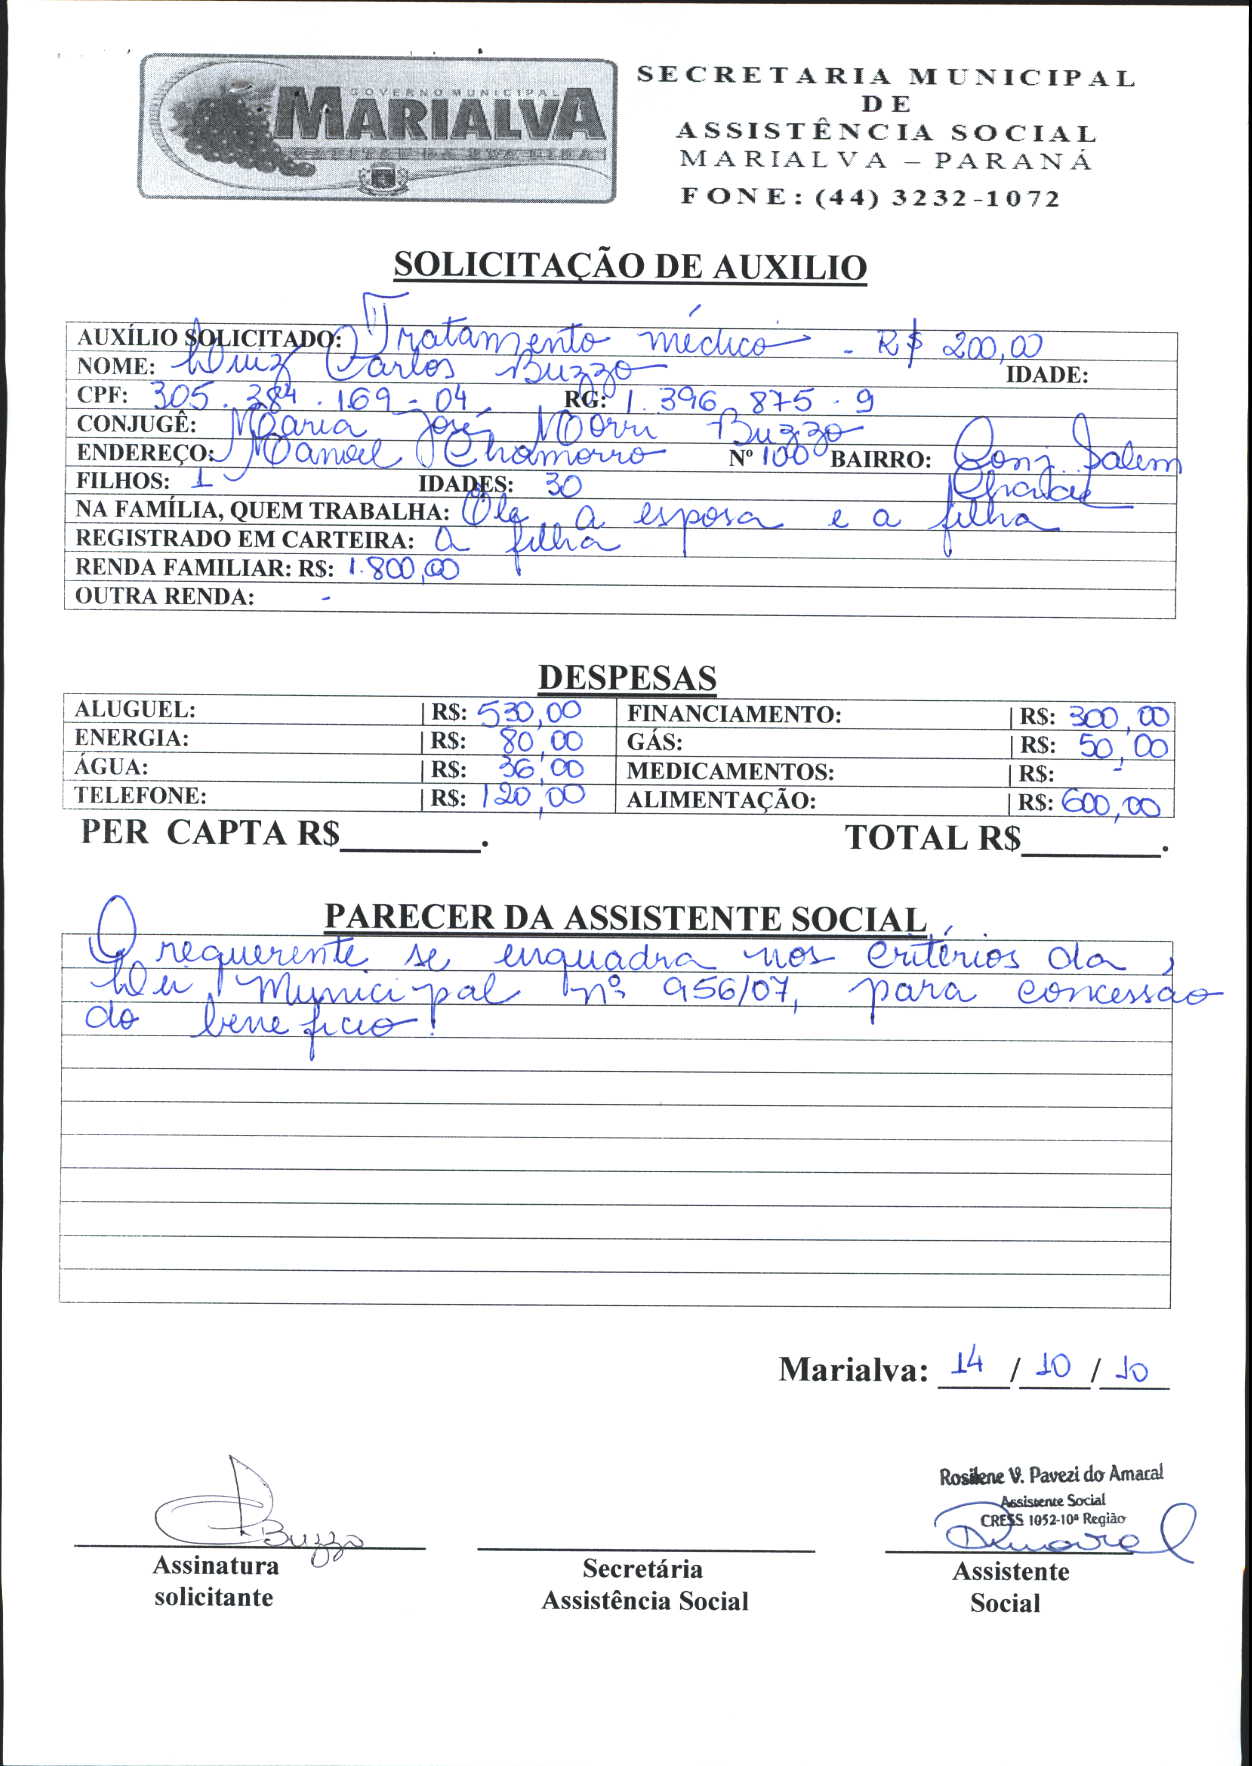 GOVERNO MUNICIPAL
MARIALVA
CAPITAL DA UVA FINA
SECRETARIA MUNICIPAL
DE
ASSISTÊNCIA SOCIAL
MARIALVA – PARANÁ
FONE: (44) 3232-1072
SOLICITAÇÃO DE AUXILIO
AUXÍLIO SOLICITADO: Tratamento médico - R$ 200,00
NOME: Luiz Carlos Buzzo IDADE:
CPF: 305.384.169-04 RG: 1.396.875-9
CONJUGÊ: Maria José Morri Buzzo
ENDEREÇO: Manoel Chamorro Nº 100 BAIRRO: Conj. Salem
FILHOS: 1 IDADES: 30
NA FAMÍLIA, QUEM TRABALHA: Ele, a esposa e a filha
REGISTRADO EM CARTEIRA: a filha
RENDA FAMILIAR: R$: 1.800,00
OUTRA RENDA: -
DESPESAS
ALUGUEL: R$: 530,00 FINANCIAMENTO: R$: 300,00
ENERGIA: R$: 80,00 GÁS: R$: 50,00
ÁGUA: R$: 36,00 MEDICAMENTOS: R$: -
TELEFONE: R$: 120,00 ALIMENTAÇÃO: R$: 600,00
PER CAPTA R$________. TOTAL R$________.
PARECER DA ASSISTENTE SOCIAL
O requerente se enquadra nos critérios da
Lei Municipal nº 956/07, para concessão
do benefício!
Marialva: 14 / 10 / 10
Rosilene V. Pavezi do Amaral
Assistente Social
CRESS 1052-10ª Região
Buzzo
Assinatura Secretária Assistente
solicitante Assistência Social Social